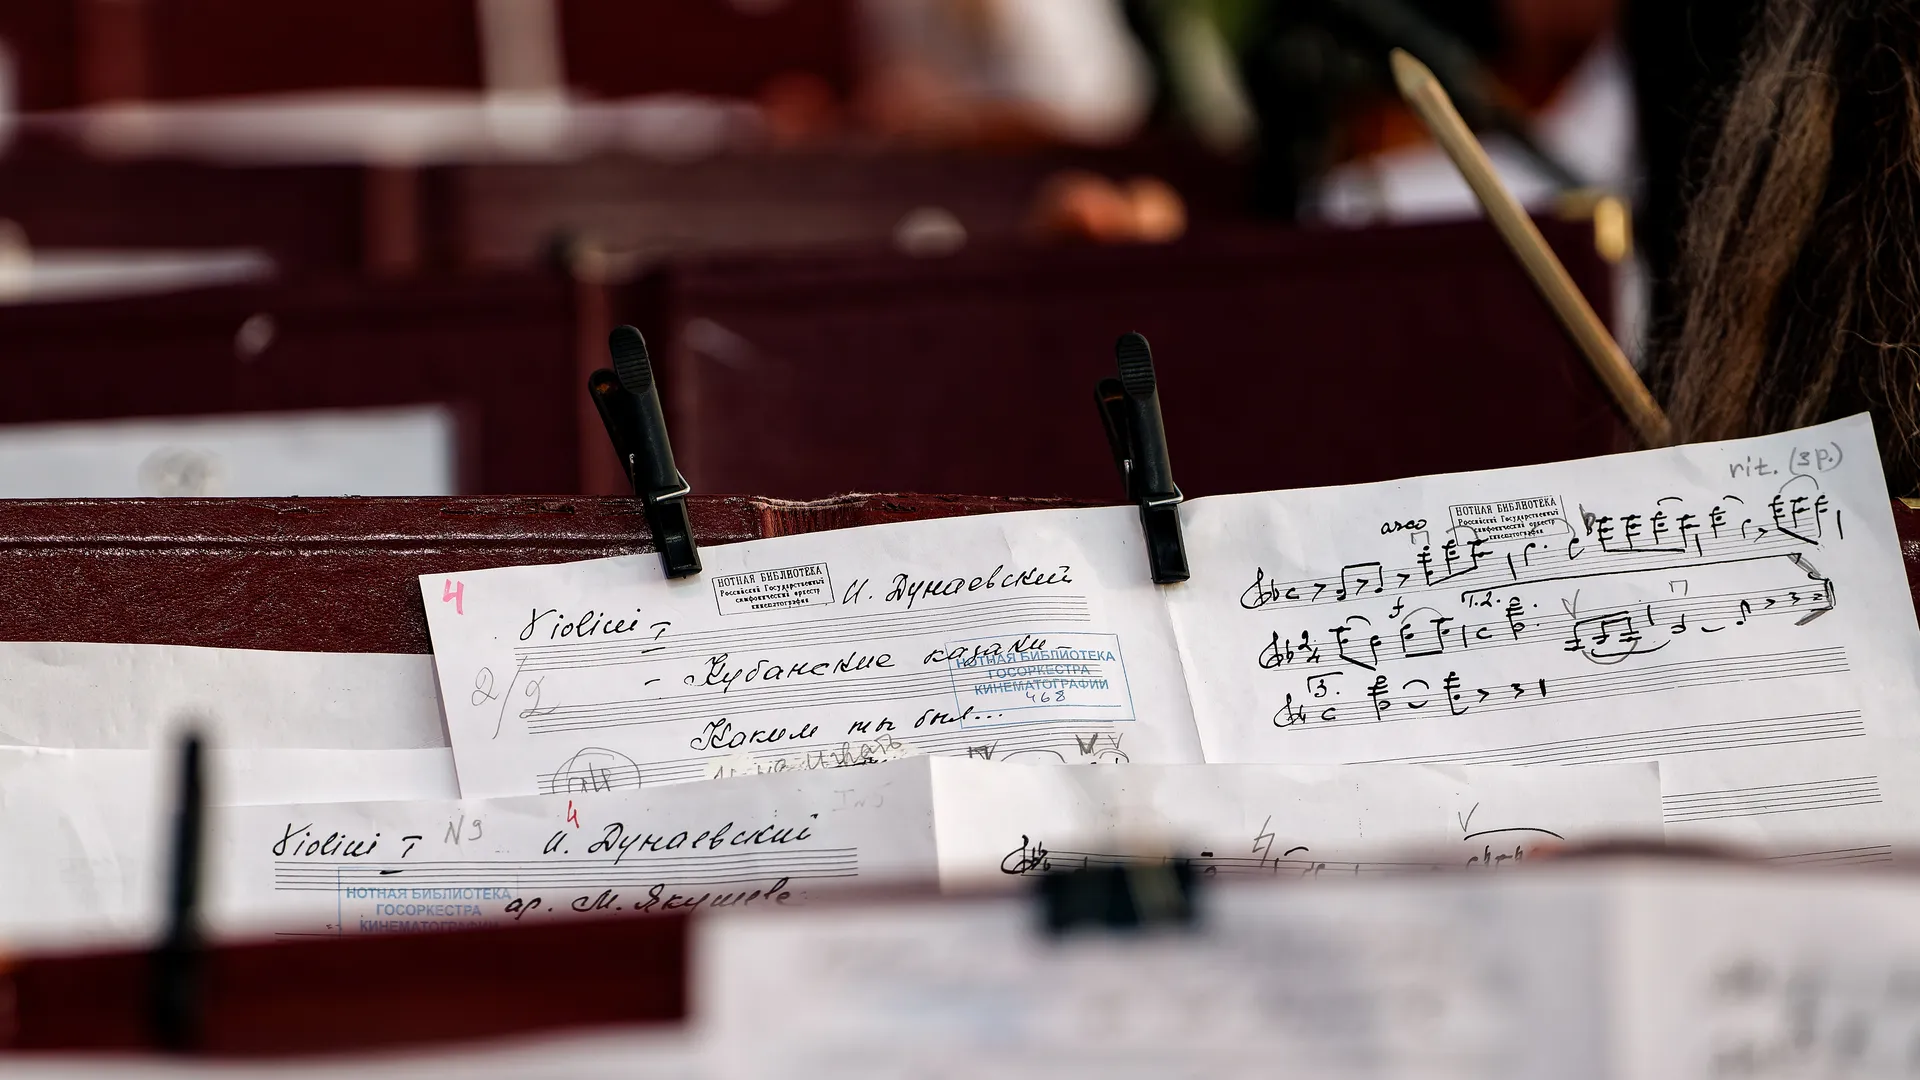 4
НОТНАЯ БИБЛИОТЕКА
Российский Государственный
симфонический оркестр
кинематографии
И. Дунаевский
Violini I
- Кубанские казаки -
2/2
НОТНАЯ БИБЛИОТЕКА
ГОСОРКЕСТРА
КИНЕМАТОГРАФИИ
468
Каким ты был...
rit. (3р.)
arco
НОТНАЯ БИБЛИОТЕКА
Российский Государственный
симфонический оркестр
кинематографии
f
1.2.
3.
4
Violini I N9 И. Дунаевский
НОТНАЯ БИБЛИОТЕКА
ГОСОРКЕСТРА
КИНЕМАТОГРАФИИ
ар. М. Якушева